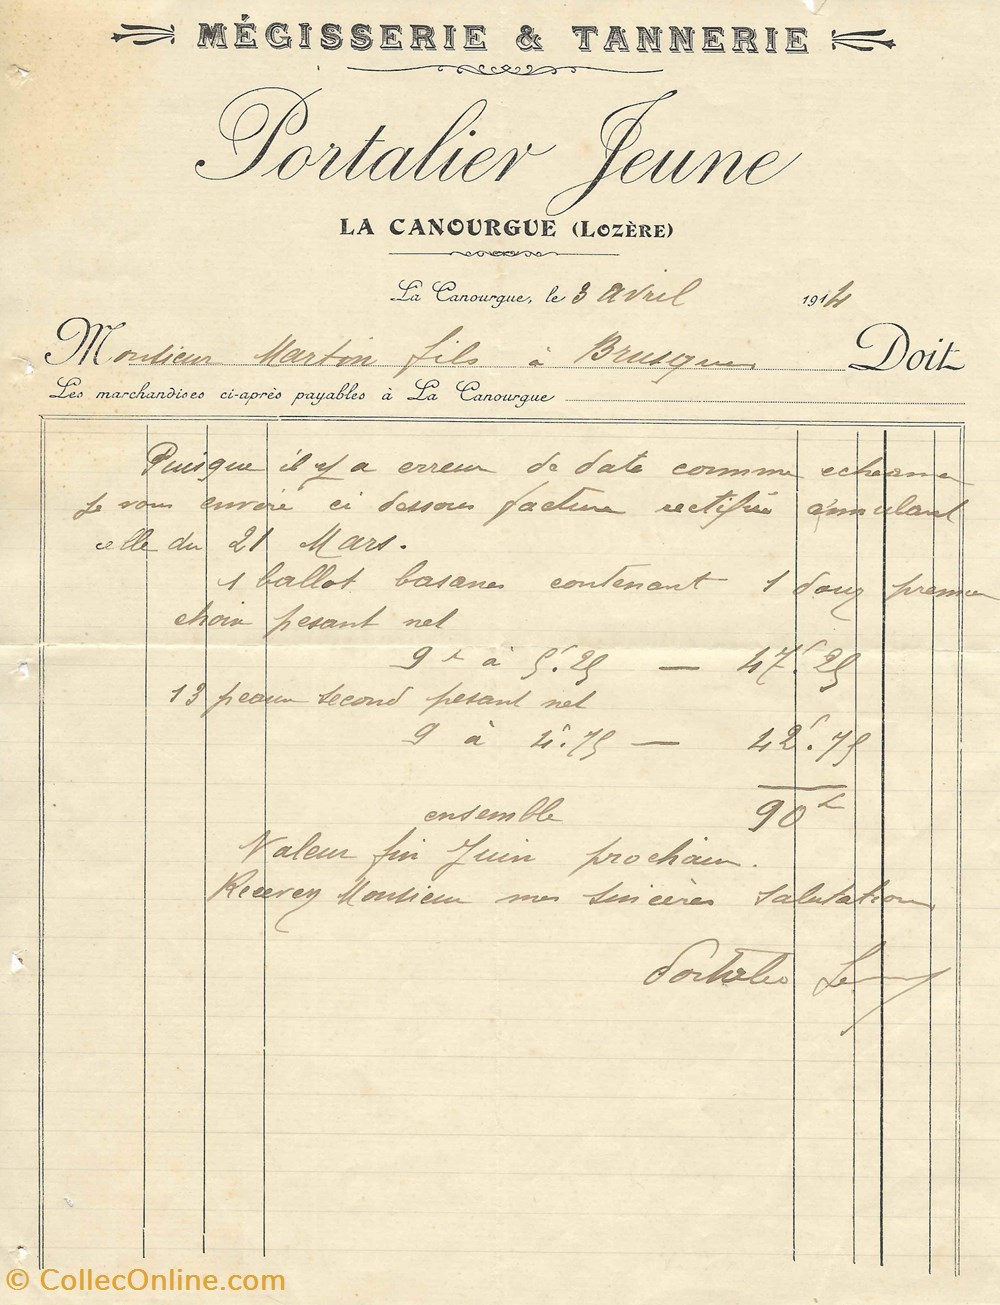 MÉGISSERIE & TANNERIE
Portalier Jeune
LA CANOURGUE (LOZÈRE)
La Canourgue, le 3 avril 1914
Monsieur Martin fils à Brusque Doit
Les marchandises ci-après payables à La Canourgue
Puisque il y a erreur de date comme
je vous envoie ci dessous facture rectifiée annulant
celle du 21 Mars.
1 ballot basanes contenant 1 douz premier
choix pesant net
9 k à 5f.25 — 47f.25
13 peaux second pesant net
9 à 4f.75 — 42f.75
ensemble 90f
Valeur fin Juin prochain.
Recevez Monsieur mes sincères salutations
Portalier Jeune
© CollecOnline.com